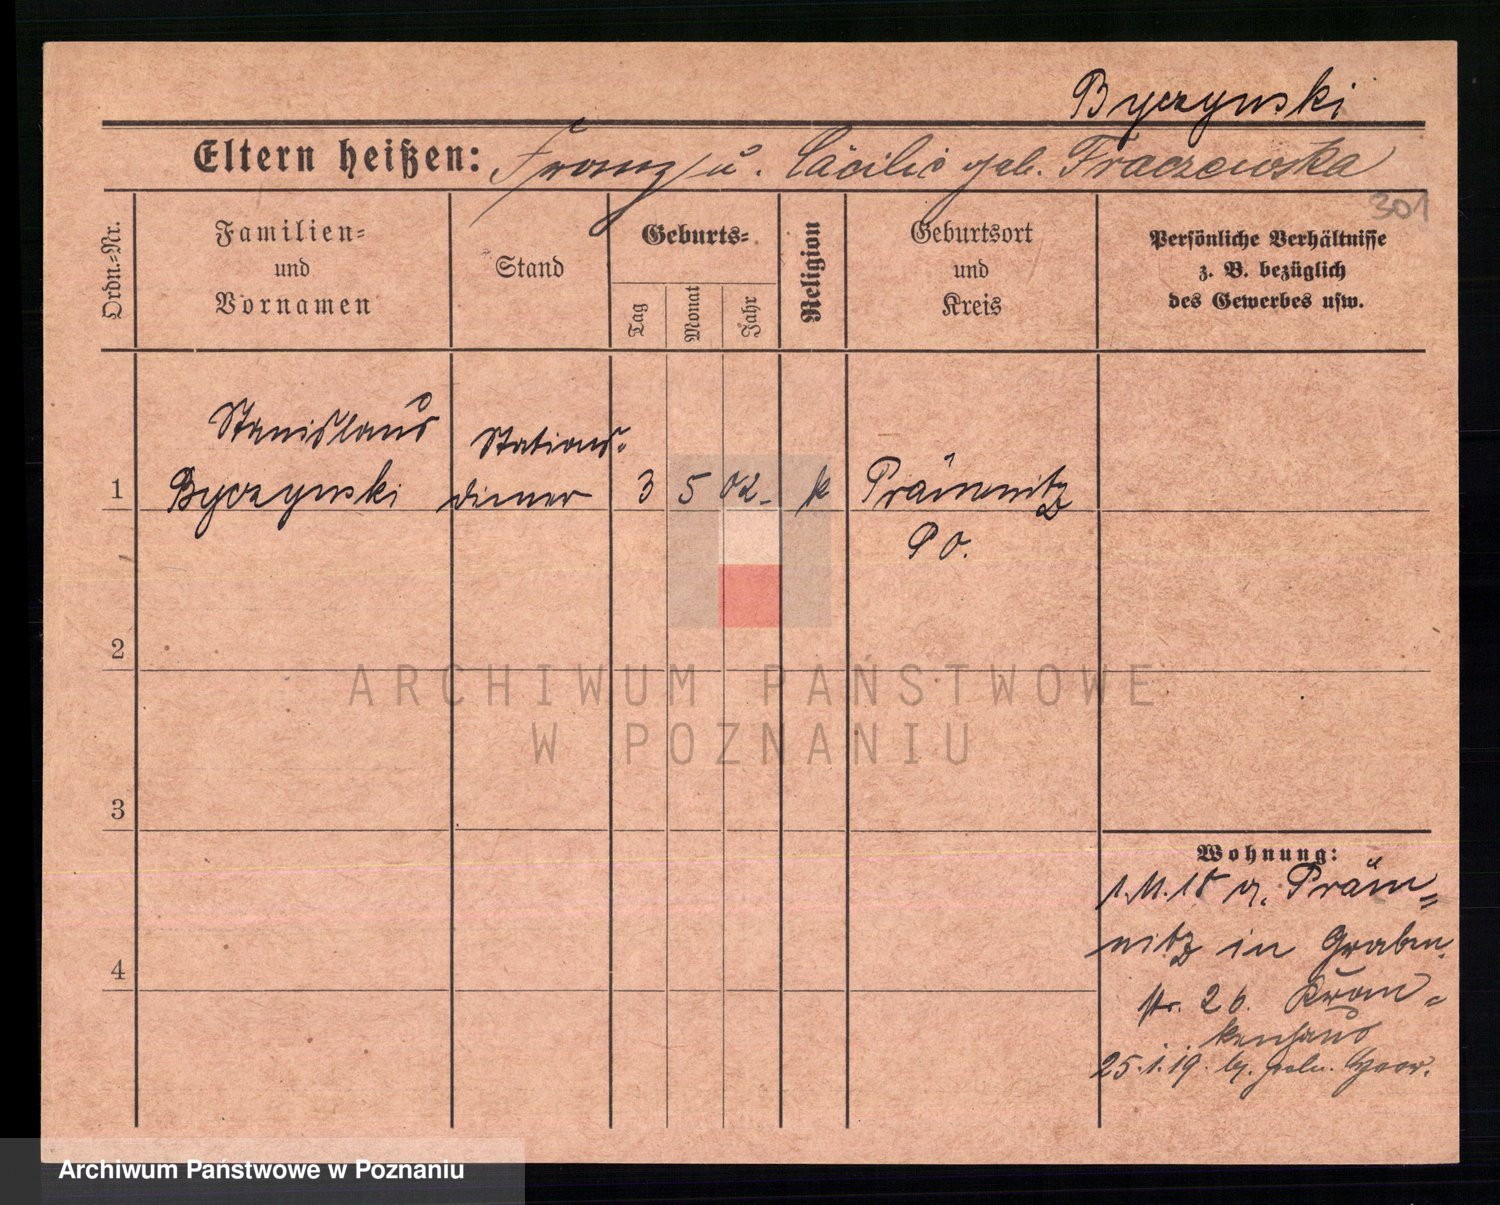 Byczynski
Eltern heißen: Franz u. Cäcilie geb. Fraczewska
301
Ordn.-Nr.
Familien-
und
Vornamen
Stand
Geburts-
Tag
Monat
Jahr
Religion
Geburtsort
und
Kreis
Persönliche Verhältnisse
z. B. bezüglich
des Gewerbes usw.
Stanislaus Stations-
1 Byczynski diener 3 5 02 k Prämnitz
PO.
2
ARCHIWUM PAŃSTWOWE
W POZNANIU
3
Wohnung:
1.11.18 v. Präm-
nitz in Graben
4
str. 26. Kran-
kenhaus
25.1.19. poln.
Archiwum Państwowe w Poznaniu